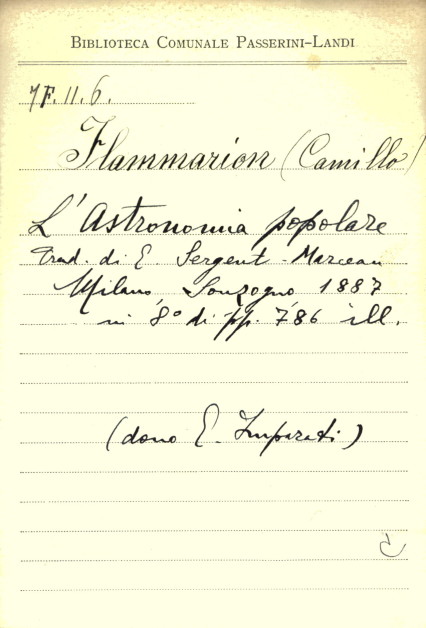 BIBLIOTECA COMUNALE PASSERINI-LANDI
7F. 11. 6.
Flammarion (Camillo)
L'Astronomia popolare
Trad. di E. Sergent-Marceau
Milano, Sonzogno, 1887
in 8° di pp. 786 ill.
(dono E. Imparati)